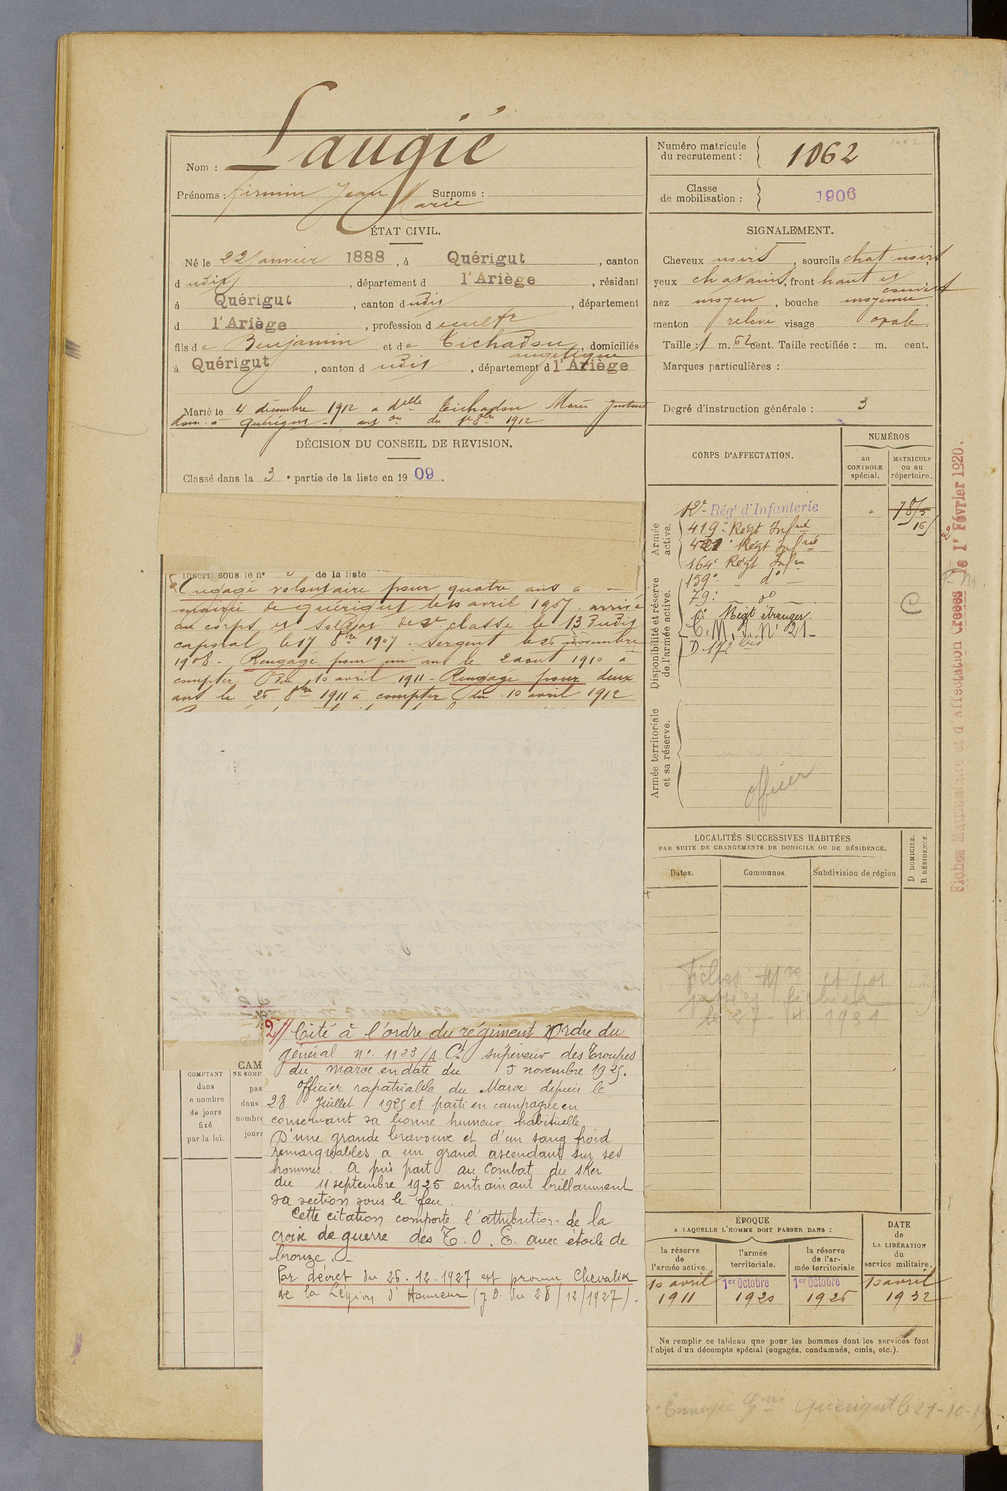 Laugié
Nom :
Prénoms : Firmin Jean Marie Surnoms :
Numéro matricule du recrutement : 1062
Classe de mobilisation : 1906
ÉTAT CIVIL.
Né le 22 Janvier 1888, à Quérigut, canton
dudit, département d l'Ariège, résidant
à Quérigut, canton dudit, département
d l'Ariège, profession d cultr
fils de Benjamin et de Tichadou angélique, domiciliés
à Quérigut, canton dudit, département d l'Ariège
Marié le 4 décembre 1912 a delle Tichadou Marie Justine
dom. à Quérigut
DÉCISION DU CONSEIL DE REVISION.
Classé dans la 3e partie de la liste en 1909.
SIGNALEMENT.
Cheveux noirs, sourcils chat. noirs
yeux chatains, front haut et couvert
nez moyen, bouche moyenne
menton relevé visage ovale
Taille : 1 m. 62 cent. Taille rectifiée : m. cent.
Marques particulières :
Degré d'instruction générale : 3
Inscrit sous le no de la liste
Engagé volontaire pour quatre ans à
mairie de Quérigut le 10 avril 1907. arrivé
au corps et Soldat de 2e classe le 13 dudit
caporal le 17 8bre 1907. Sergent le 26 novembre
1908. Rengagé pour un ant le 2 aout 1910 à
compter du 10 avril 1911 - Rengagé pour deux
ans le 25 8bre 1911 à compter du 10 avril 1912
CORPS D'AFFECTATION.
NUMÉROS
au CONTROLE spécial.
MATRICULE ou au répertoire.
Armée active.
Rég. d'Infanterie
419e Regt Infrie
421e Régt Infrie
164e Régt Infie
159e do
79e do
Régt étranger
C. M. I. No 21
D 172 bis
Disponibilité et réserve de l'armée active.
Armée territoriale et sa réserve.
officier
C
Fiches Matriculaire et d'Affectation Créées le 1er Février 1920.
LOCALITÉS SUCCESSIVES HABITÉES
PAR SUITE DE CHANGEMENTS DE DOMICILE OU DE RÉSIDENCE.
Dates.
Communes
Subdivision de région.
D DOMICILE.
R RÉSIDENCE
CAM
COMPTANT
dans
le nombre
de jours
fixé
par la loi.
2// Cité à l'ordre du régiment Ordre du
général no 1123/1 C. supérieur des Troupes
du Maroc en date du 5 novembre 1925.
Officier rapatriable du Maroc depuis le
28 Juillet 1925 et parti en campagne en
conservant sa bonne humeur habituelle.
D'une grande bravoure et d'un sang froid
remarquables a un grand ascendant sur ses
hommes. A pris part au Combat du Sker
du 11 septembre 1925 entrainant brillamment
sa section sous le feu.
Cette citation comporte l'attribution de la
croix de guerre des T. O. E. avec étoile de
bronze. -
Par décret du 26.12.1927 est promu Chevalier
de la Légion d'Honneur (J.O. du 28/12/1927).
ÉPOQUE
A LAQUELLE L'HOMME DOIT PASSER DANS :
la réserve de l'armée active.
l'armée territoriale.
la réserve de l'armée territoriale
DATE de LA LIBÉRATION du service militaire.
10 avril 1911
1er Octobre 1920
1er Octobre 1926
10 avril 1932
Ne remplir ce tableau que pour les hommes dont les services font
l'objet d'un décompte spécial (engagés, condamnés, omis, etc.).